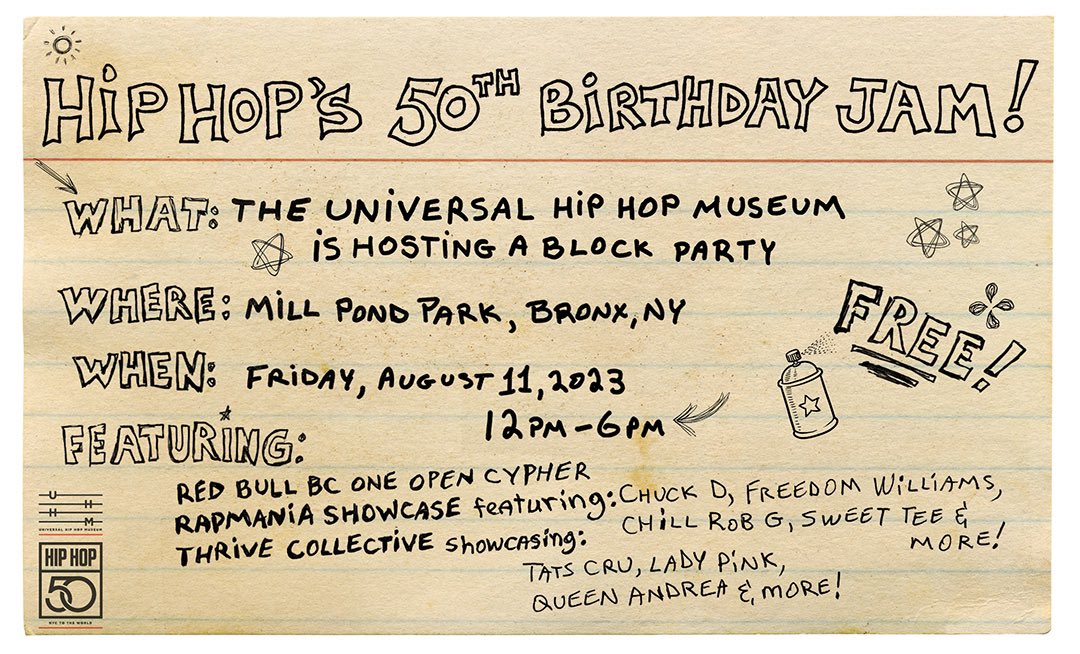 HiP HOP's 50TH BiRTHDAY JAM!
WHAT: THE UNiVERSAL HiP HOP MUSEUM
iS HOSTiNG A BLOCK PARTY
WHERE: MiLL POND PARK, BRONX, NY
FREE!
WHEN: FRiDAY, AUGUST 11, 2023
12PM-6PM
FEATURiNG:
RED BULL BC ONE OPEN CYPHER
RAPMANiA SHOWCASE featuring: CHUCK D, FREEDOM WiLLiAMS,
CHiLL ROB G, SWEET TEE &
MORE!
THRiVE COLLECTiVE showcasing:
TATS CRU, LADY PiNK,
QUEEN ANDREA & MORE!
U
H
H
M
UNIVERSAL HIP HOP MUSEUM
HIP HOP
50
NYC TO THE WORLD